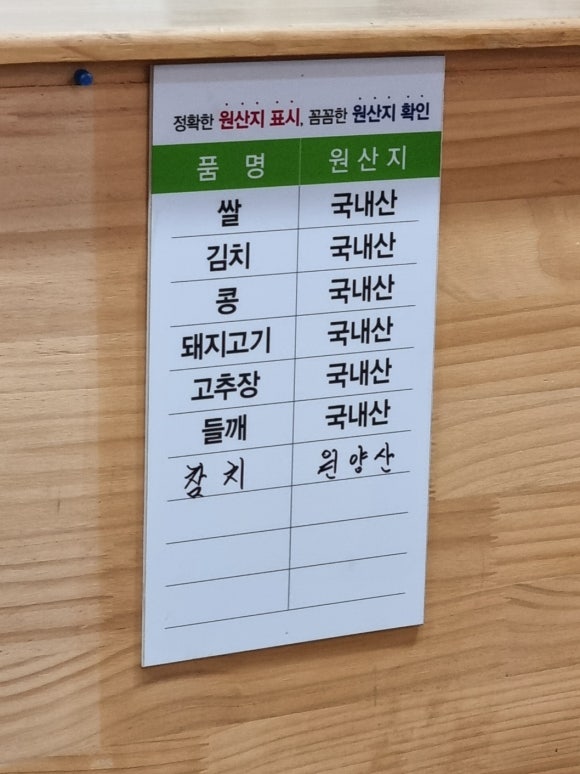 정확한 원산지 표시, 꼼꼼한 원산지 확인
품 명 원산지
쌀 국내산
김치 국내산
콩 국내산
돼지고기 국내산
고추장 국내산
들깨 국내산
참치 원양산